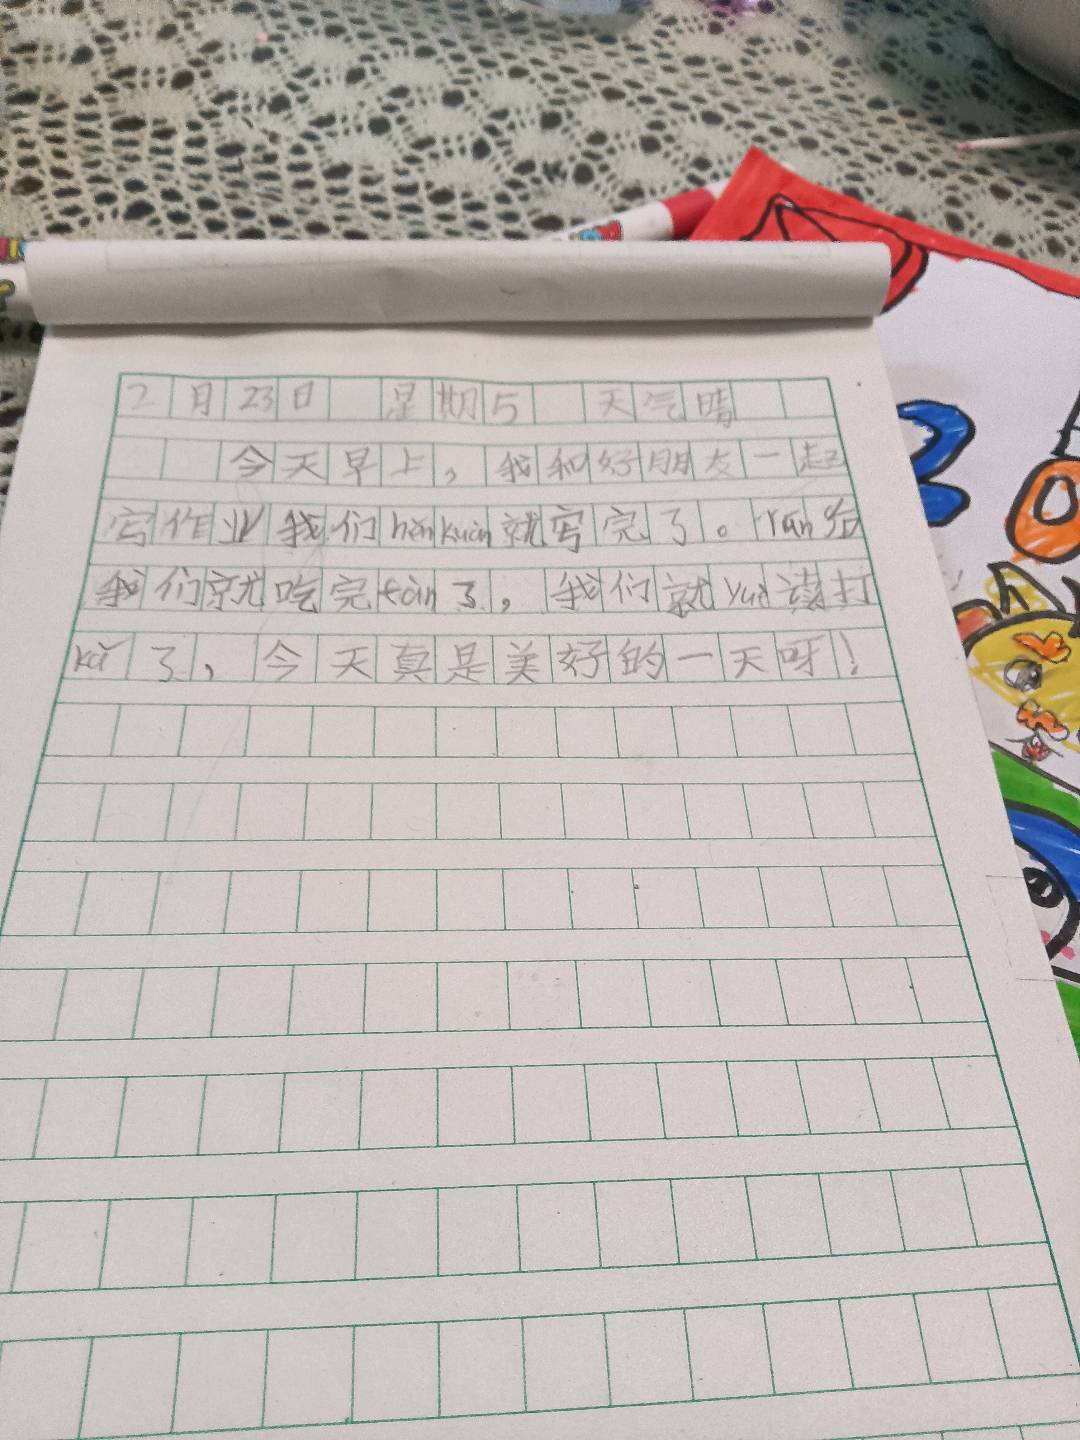 2月23日 星期5 天气晴
今天早上，我和好朋友一起
写作业我们hěnkuài就写完了。rán后
我们就吃完fàn了，我们就yuè读打
kǎ了，今天真是美好的一天呀！
2